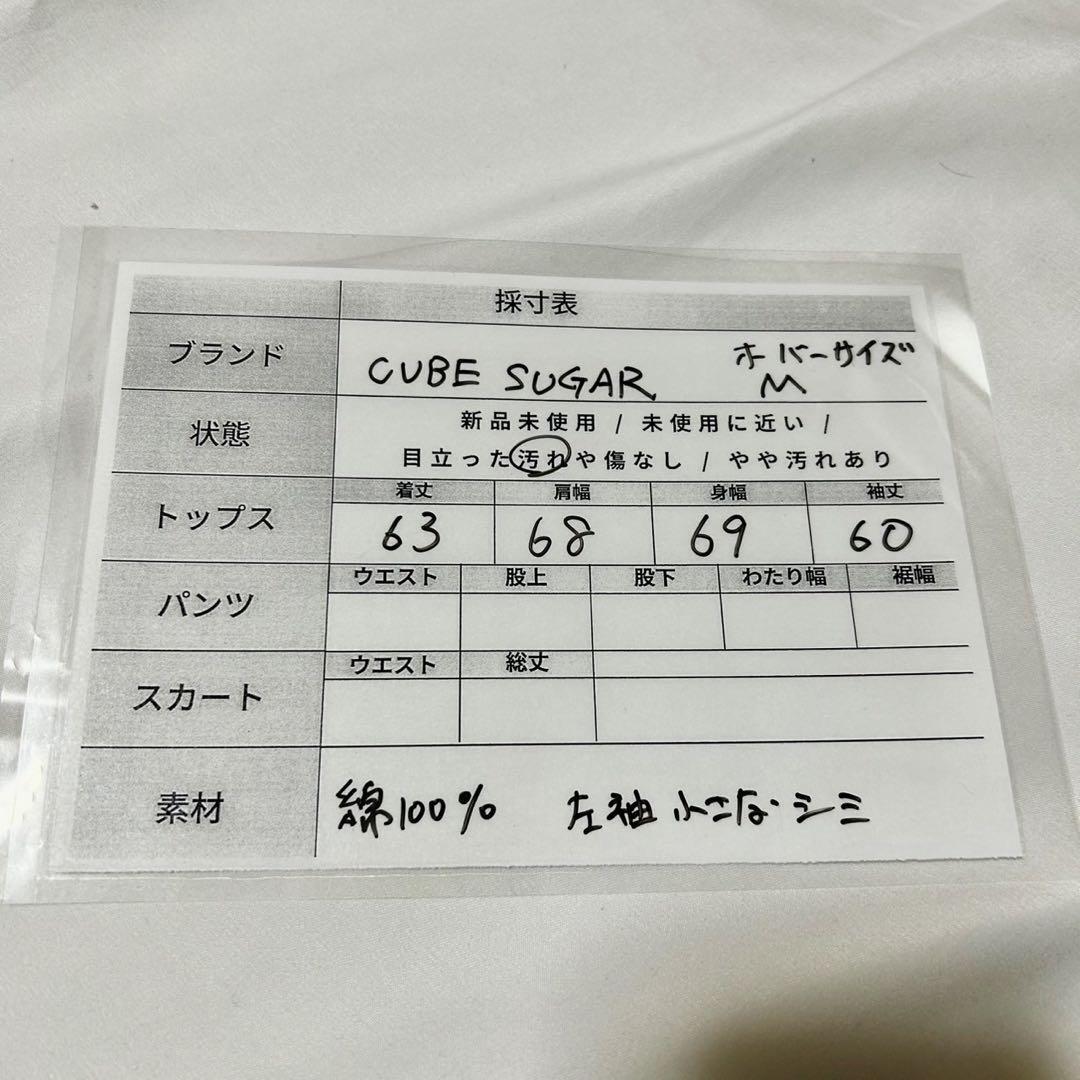 採寸表
ブランド CUBE SUGAR オーバーサイズ M
状態 新品未使用 / 未使用に近い /
目立った汚れや傷なし / やや汚れあり
トップス 着丈 肩幅 身幅 袖丈
63 68 69 60
パンツ ウエスト 股上 股下 わたり幅 裾幅
スカート ウエスト 総丈
素材 綿100% 左袖 小さな シミ